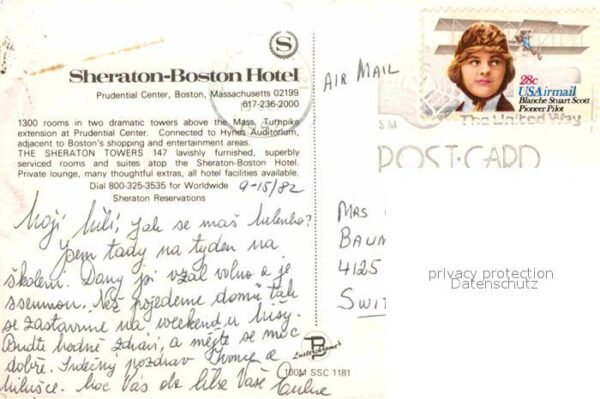 S
Sheraton-Boston Hotel
Prudential Center, Boston, Massachusetts 02199
617-236-2000
1300 rooms in two dramatic towers above the Mass. Turnpike
extension at Prudential Center. Connected to Hynes Auditorium,
adjacent to Boston's shopping and entertainment areas.
THE SHERATON TOWERS 147 lavishly furnished, superbly
serviced rooms and suites atop the Sheraton-Boston Hotel.
Private lounge, many thoughtful extras, all hotel facilities available.
Dial 800-325-3535 for Worldwide
Sheraton Reservations
9-15/82
Moji milí, jak se maš
jsem tady na tyden na
školeni. Dany si vzal volno a je
semnou. Než pojedeme domů tak
se zastavime na weekend u
Buďte hodně zdrávi, a mějte se moc
dobře. Srdečný pozdrav a
Moc Vás oba líbá Vaše
AIR MAIL
28c
USAirmail
Blanche Stuart Scott
Pioneer Pilot
SM
The United Way
POST·CARD
MRS
BAUM
4125
SWIT
privacy protection
Datenschutz
Lusterchrome
100M SSC 1181